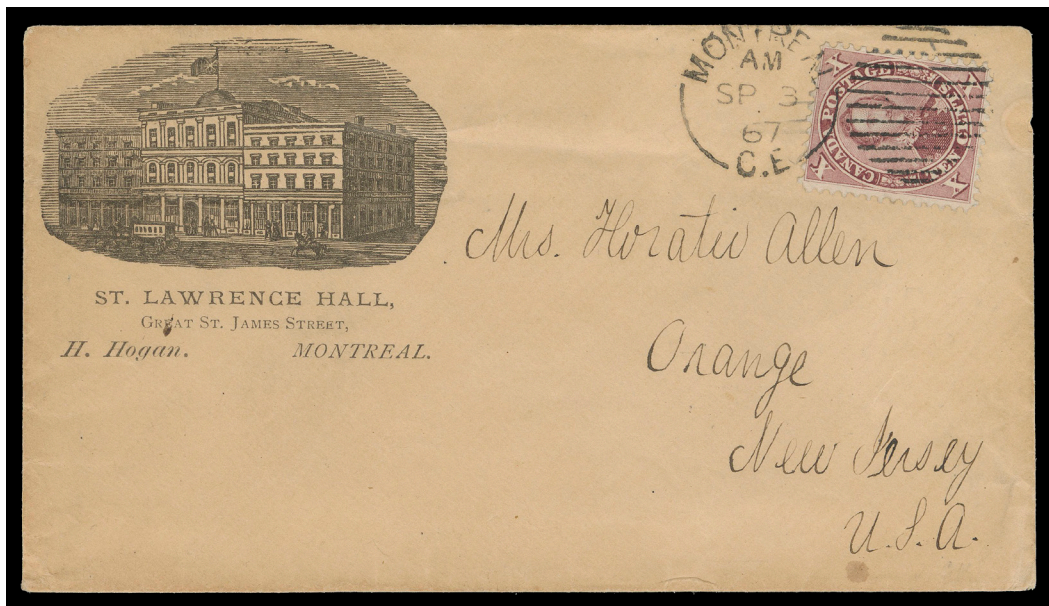 ST. LAWRENCE HALL,
GREAT ST. JAMES STREET,
H. Hogan. MONTREAL.
MONTRE
AM
SP 3
67
C.E
X X
CANADA POSTAGE TEN CENTS
X X
Mrs. Horatio Allen
Orange
New Jersey
U.S.A.